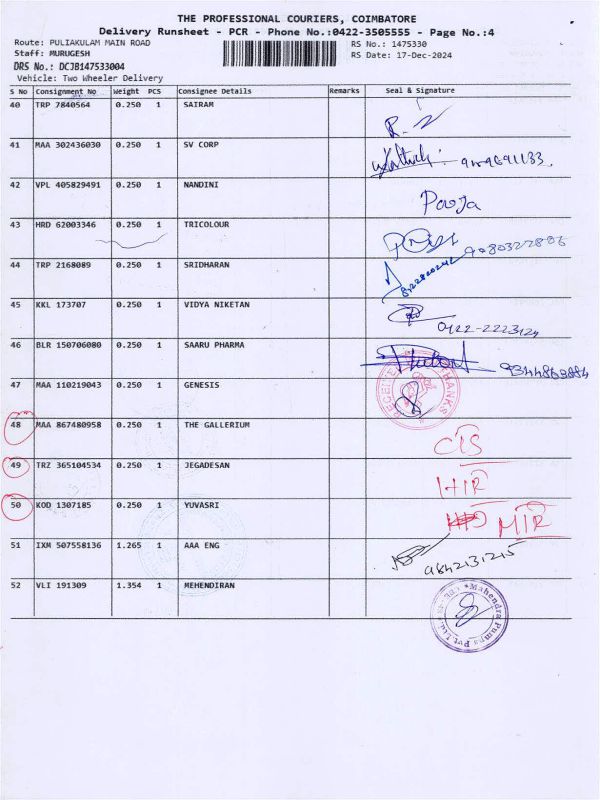 THE PROFESSIONAL COURIERS, COIMBATORE
Delivery Runsheet - PCR - Phone No.:0422-3505555 - Page No.:4
Route: PULIAKULAM MAIN ROAD RS No.: 1475330
Staff: MURUGESH RS Date: 17-Dec-2024
DRS No.: DCJB147533004
Vehicle: Two Wheeler Delivery
S No Consignment No Weight PCS Consignee Details Remarks Seal & Signature
40 TRP 7840564 0.250 1 SAIRAM
41 MAA 302436030 0.250 1 SV CORP
42 VPL 405829491 0.250 1 NANDINI Pooja
43 HRD 62003346 0.250 1 TRICOLOUR
44 TRP 2168089 0.250 1 SRIDHARAN
45 KKL 173707 0.250 1 VIDYA NIKETAN
46 BLR 150706080 0.250 1 SAARU PHARMA
47 MAA 110219043 0.250 1 GENESIS
48 MAA 867480958 0.250 1 THE GALLERIUM CTS
49 TRZ 365104534 0.250 1 JEGADESAN HIR
50 KOD 1307185 0.250 1 YUVASRI MIR
51 IXM 507558136 1.265 1 AAA ENG 9842131215
52 VLI 191309 1.354 1 MEHENDIRAN Mahendra Pumps Pvt. Ltd.